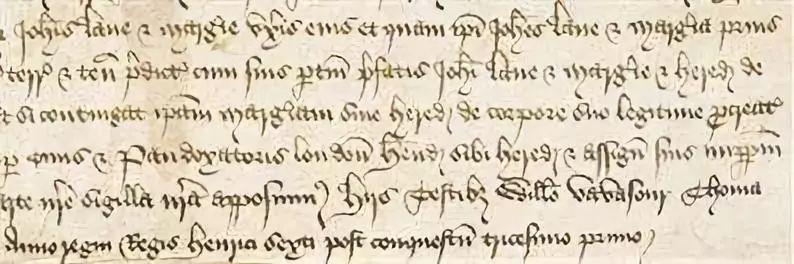 Joh̄is Lane & Margīe Uxīs eius et quam ip̄i Joh̄es Lane & Marḡia prius
terr̄ & ten̄ p̄dict̄ cum suis ptin̄ p̄fatis Joh̄i Lane & Margīe & hered̄ de
si contingat ip̄am Marḡiam sine hered̄ de corpore suo legitime pcreat̄
Ciuis & Pandoxatoris london̄ hend̄ sibi hered̄ & assign̄ suis imppm̄
n̄re sigilla n̄ra apposuim̄ Hiis Testibȝ Will̄o Vavasour Thoma
Anno regni Regis Henrici sexti post conquestū tricesimo primo